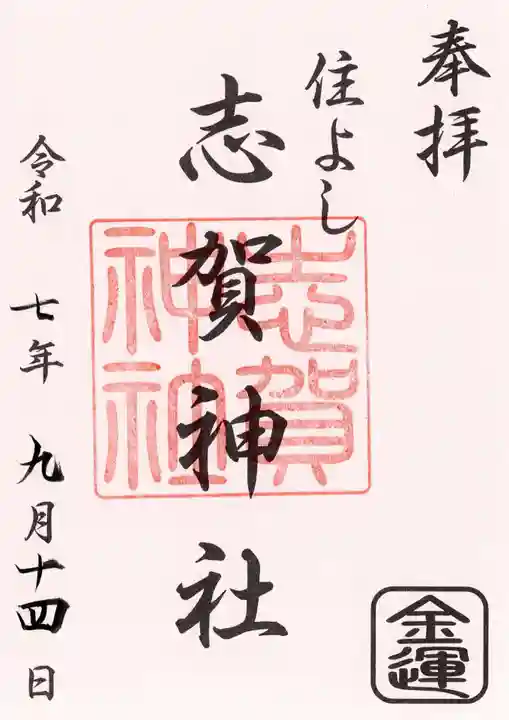 奉拝
住よし
志賀神社
志賀神社
令和 七年 九月十四日
金運